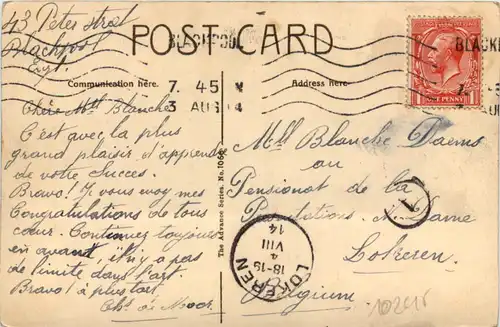 43 Peter street
Blackpool
Engt.
POST CARD
BLACKPOOL
7. 45
3 AUG 14
Communication here.
Address here.
ONE PENNY
Chère Mlle Blanche
C'est avec la plus
grand plaisir d'apprendre
de votre succes.
Bravo! Je vous
Congratulations de tous
cœur. Continuez toujours
en avant, il n'y a pas
de limite dans l'art.
Bravo! à plus tart
The Advance Series. No. 106
Mlle Blanche Daems
au
Pensionat de la
N. Dame
Lokeren
Belgium
LOKEREN
18-19
4
VIII
14
1